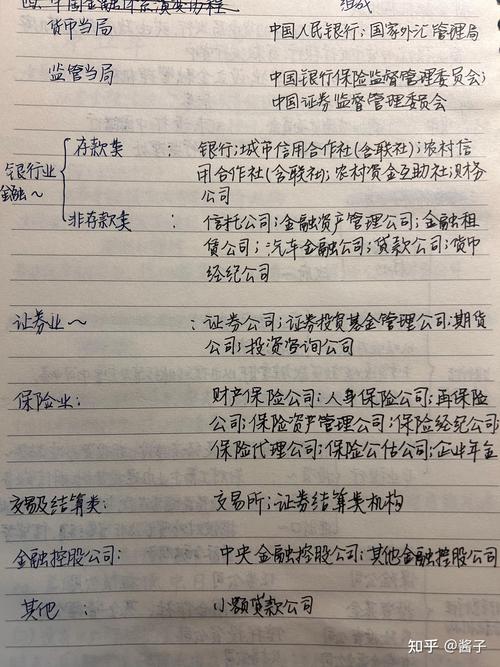 四. 中国金融体系演变历程 组成
货币当局 中国人民银行;国家外汇管理局
监管当局 中国银行保险监督管理委员会;
中国证券监督管理委员会
存款类 : 银行;城市信用合作社(含联社);农村信
银行业 用合作社(含联社);农村资金互助社;财务
金融~ 公司
非存款类 : 信托公司;金融资产管理公司;金融租
赁公司;汽车金融公司;贷款公司;货币
经纪公司
证券业~ :证券公司;证券投资基金管理公司;期货
公司;投资咨询公司
保险业: 财产保险公司;人身保险公司;再保险
公司;保险资产管理公司;保险经纪公司
保险代理公司;保险公估公司;企业年金
交易及结算类: 交易所;证券结算类机构
金融控股公司: 中央金融控股公司;其他金融控股公司
其他 : 小额贷款公司
知乎 @酱子